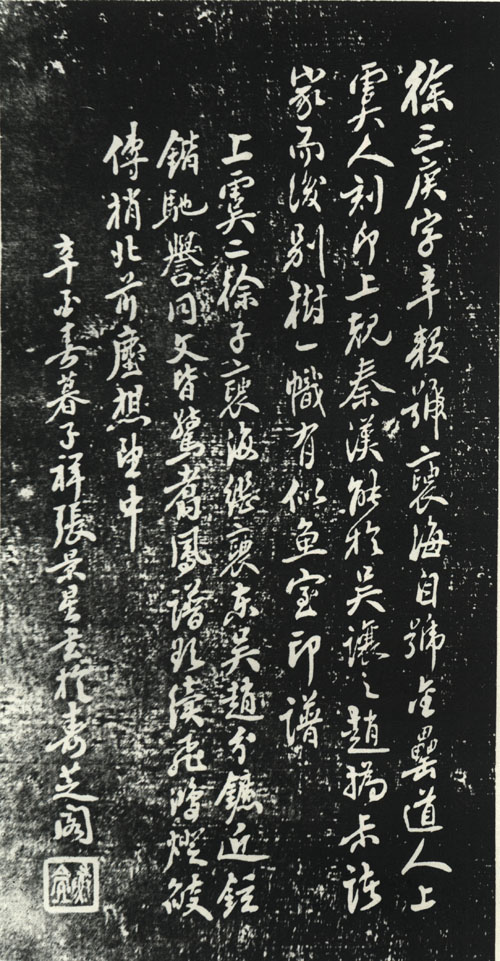 徐三庚字辛穀號褎海自號金罍道人上
虞人刻印上規秦漢能於吳讓之趙撝叔諸
家而後別樹一幟有似魚室印譜
上虞二徐子褎海繼褎東吳趙分鑣近
鍇馳譽同文皆驚翥鳳譜續飛鴻燈
傳前塵想望中
辛酉春暮子祥張景星書於壽芝閣